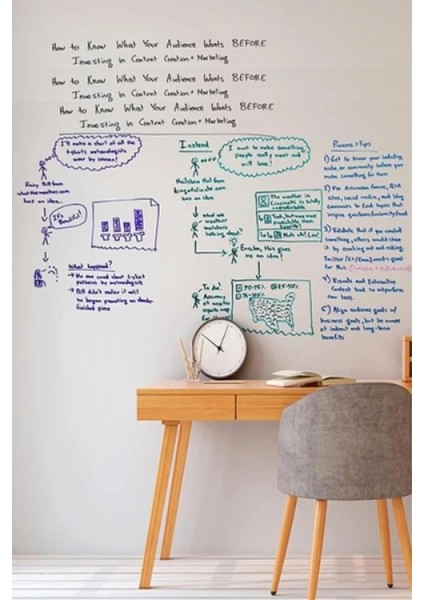 How to Know What Your Audience Wants BEFORE
Investing in Content Creation + Marketing
How to Know What Your Audience Wants BEFORE
Investing in Content Creation + Marketing
How to Know What Your Audience Wants BEFORE
Investing in Content Creation + Marketing
I'll make a chart of all the
t-shirts meteorologists
wear by season!
Rainy Bill from
whattheweather.com
has an idea...
It's
Beautiful!
What happened?
→ No one cared about t-shirt
patterns by meteorologists
→ Bill didn't realize it will
he began promoting an
finished piece
Instead
I want to make something
people really want and
will love!
from
has an idea
what are
weather
watchers
talking
about?
The weather in
Cincinnati is totally
unpredictable
Yeah, but way more
predictable than
Seattle!
Haha, so true! Lol!
Eureka, this gives
me an idea!
To do:
Accuracy
of weather
reports map
for
70-75%
Process + Tips
1) Get to know your industry,
niche, or community before you
make something for them
2) Use discussion forums, Q&A
sites, social media, and blog
comments to find topics that
inspire questions/curiosity/need
3) Validate that if you create
something, others would share
it by reaching out and asking.
Twitter/G+/Email works great
for this.
4) Visuals and Interactive
Content tend to outperform
raw text.
5) Align audience goals w/
business goals, but be aware
of indirect and long-term
benefits